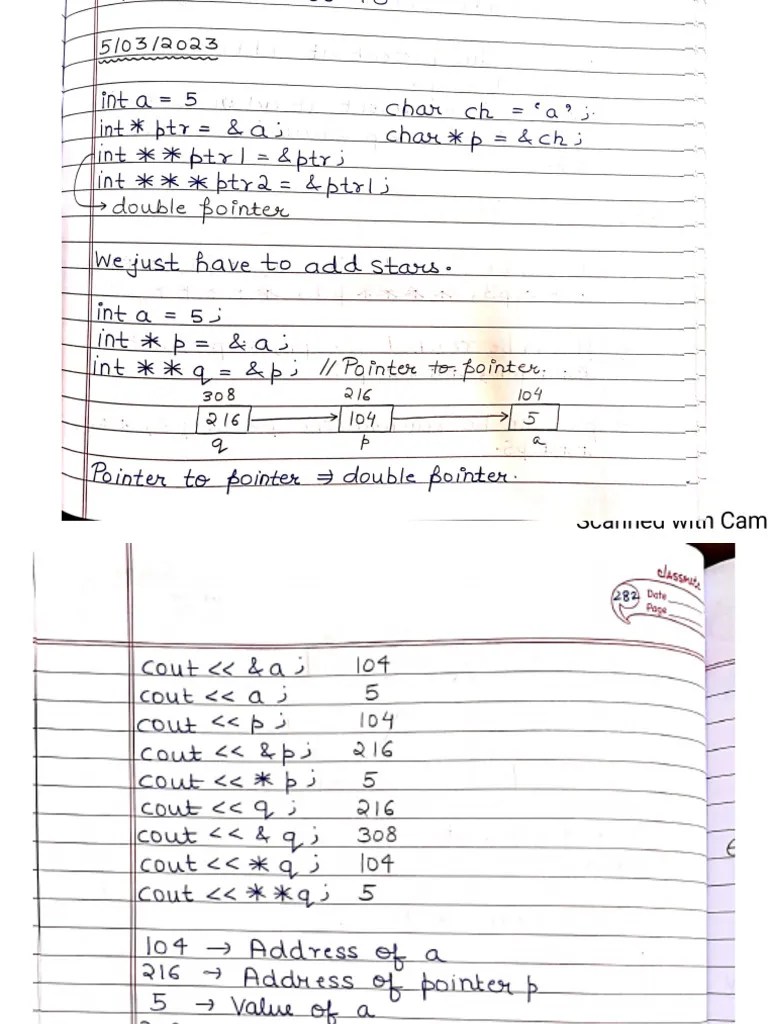 5/03/2023
int a = 5 char ch = 'a';
int * ptr = & a; char * p = & ch;
int * * ptr1 = &ptr;
int * * * ptr2 = &ptr1;
→ double pointer
We just have to add stars.
int a = 5;
int * p = & a;
int * * q = & p; // Pointer to pointer.
308 216 104
216 → 104 → 5
q p a
Pointer to pointer ⇒ double pointer.
Scanned with Cam
classmate
282 Date
Page
cout << & a; 104
cout << a; 5
cout << p; 104
cout << & p; 216
cout << * p; 5
cout << q; 216
cout << & q; 308
cout << * q; 104
cout << * * q; 5
104 → Address of a
216 → Address of pointer p
5 → Value of a